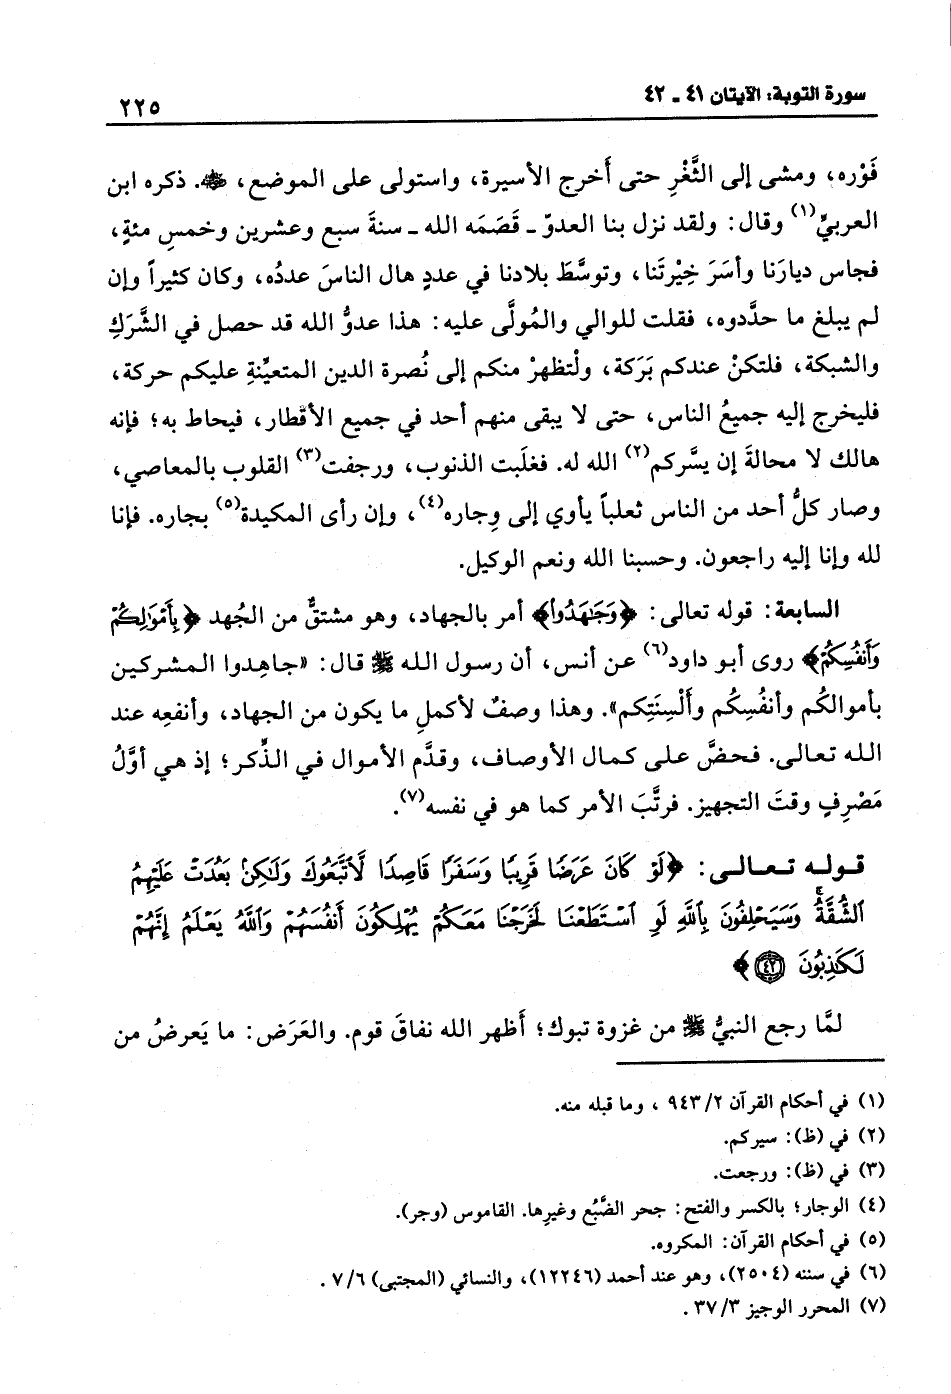 سورة التوبة: الآيتان ٤١ ـ ٤٢
٢٢٥
فَوْره، ومشى إلى الثَّغْرِ حتى أَخرج الأسيرة، واستولى على الموضع، ﷺ. ذكره ابن
العربيِّ(١) وقال: ولقد نزل بنا العدوّ ـ قَصَمَه الله ـ سنةَ سبع وعشرين وخمسِ مئةٍ،
فجاس ديارَنا وأسَرَ خِيْرتَنا، وتوسَّطَ بلادنا في عددٍ هال الناسَ عددُه، وكان كثيراً وإن
لم يبلغ ما حدَّدوه، فقلت للوالي والمُولَّى عليه: هذا عدوُّ الله قد حصل في الشَّرَكِ
والشبكة، فلتكنْ عندكم بَرَكة، ولْتظهرْ منكم إلى نُصرة الدين المتعيِّنةِ عليكم حركة،
فليخرج إليه جميعُ الناس، حتى لا يبقى منهم أحد في جميع الأقطار، فيحاط به؛ فإنه
هالك لا محالةَ إن يسَّركم(٢) الله له. فغلَبت الذنوب، ورجفت(٣) القلوب بالمعاصي،
وصار كلُّ أحد من الناس ثعلباً يأوي إلى وِجاره(٤)، وإن رأى المكيدة(٥) بجاره. فإنا
لله وإنا إليه راجعون. وحسبنا الله ونعم الوكيل.
السابعة: قوله تعالى: ﴿وَجَٰهِدُوا۟﴾ أمر بالجهاد، وهو مشتقٌّ من الجُهد ﴿بِأَمْوَٰلِكُمْ
وَأَنفُسِكُمْ﴾ روى أبو داود(٦) عن أنس، أن رسول الله ﷺ قال: «جاهِدوا المشركين
بأموالكُم وأنفُسِكُم وأَلْسِنَتِكم». وهذا وصفٌ لأكملِ ما يكون من الجهاد، وأنفعِه عند
الله تعالى. فحضَّ على كمال الأوصاف، وقدَّم الأموال في الذِّكر؛ إذ هي أوَّلُ
مَصْرِفٍ وقتَ التجهيز. فرتَّبَ الأمر كما هو في نفسه(٧).
قوله تعالى: ﴿لَوْ كَانَ عَرَضًا قَرِيبًا وَسَفَرًا قَاصِدًا لَّٱتَّبَعُوكَ وَلَٰكِنۢ بَعُدَتْ عَلَيْهِمُ
ٱلشُّقَّةُ ۚ وَسَيَحْلِفُونَ بِٱللَّهِ لَوِ ٱسْتَطَعْنَا لَخَرَجْنَا مَعَكُمْ يُهْلِكُونَ أَنفُسَهُمْ وَٱللَّهُ يَعْلَمُ إِنَّهُمْ
لَكَٰذِبُونَ ٤٢﴾
لمَّا رجع النبيُّ ﷺ من غزوة تبوك؛ أَظهر الله نفاقَ قوم. والعَرَض: ما يَعرضُ من
(١) في أحكام القرآن ٩٤٣/٢ ، وما قبله منه.
(٢) في (ظ): سيركم.
(٣) في (ظ): ورجعت.
(٤) الوجار؛ بالكسر والفتح: جحر الضَّبُع وغيرِها. القاموس (وجر).
(٥) في أحكام القرآن: المكروه.
(٦) في سننه (٢٥٠٤)، وهو عند أحمد (١٢٢٤٦)، والنسائي (المجتبى) ٧/٦ .
(٧) المحرر الوجيز ٣٧/٣ .